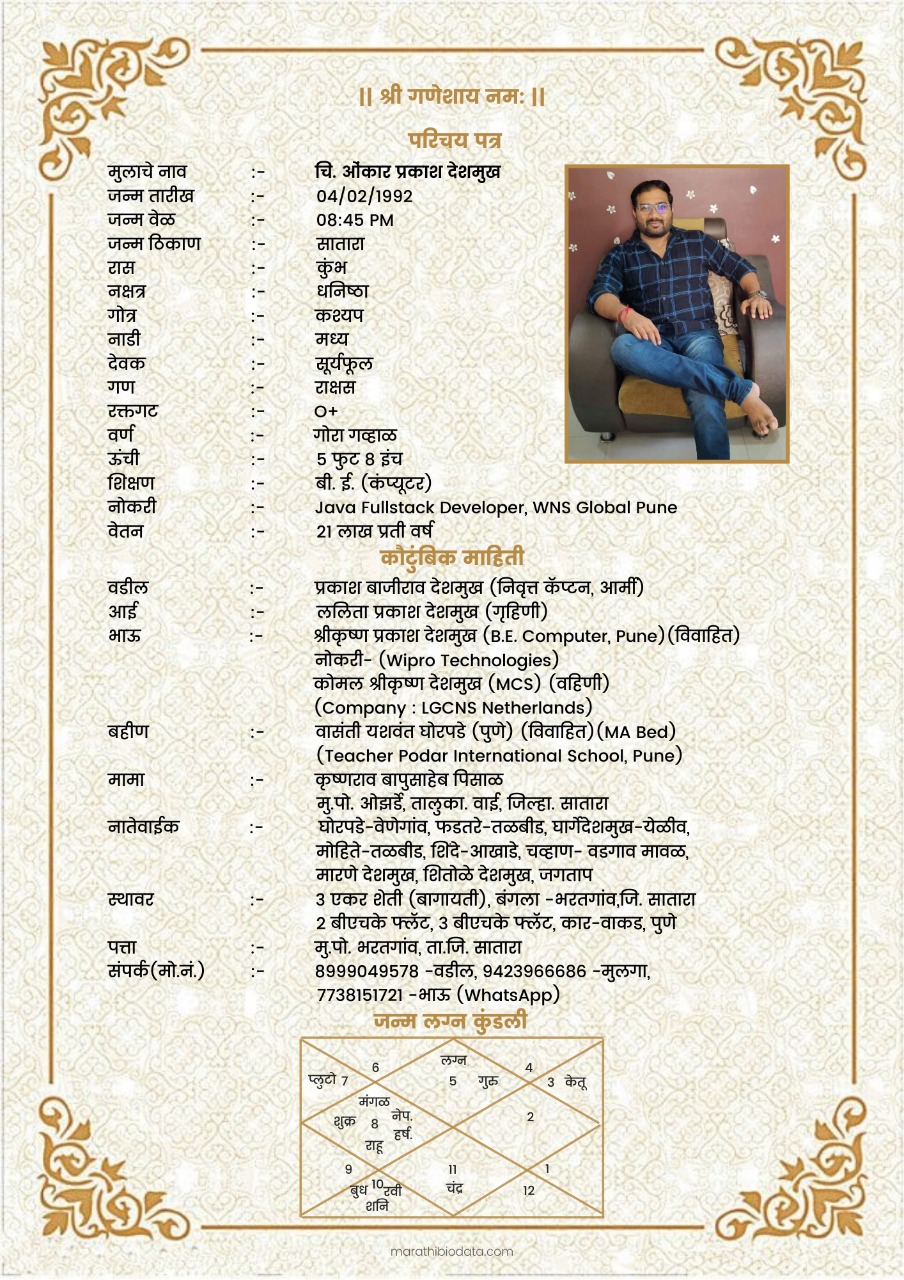 || श्री गणेशाय नम: ||
परिचय पत्र
मुलाचे नाव :- चि. ओंकार प्रकाश देशमुख
जन्म तारीख :- 04/02/1992
जन्म वेळ :- 08:45 PM
जन्म ठिकाण :- सातारा
रास :- कुंभ
नक्षत्र :- धनिष्ठा
गोत्र :- कश्यप
नाडी :- मध्य
देवक :- सूर्यफूल
गण :- राक्षस
रक्तगट :- O+
वर्ण :- गोरा गव्हाळ
ऊंची :- 5 फुट 8 इंच
शिक्षण :- बी. ई. (कंप्यूटर)
नोकरी :- Java Fullstack Developer, WNS Global Pune
वेतन :- 21 लाख प्रती वर्ष
कौटुंबिक माहिती
वडील :- प्रकाश बाजीराव देशमुख (निवृत्त कॅप्टन, आर्मी)
आई :- ललिता प्रकाश देशमुख (गृहिणी)
भाऊ :- श्रीकृष्ण प्रकाश देशमुख (B.E. Computer, Pune)(विवाहित)
नोकरी- (Wipro Technologies)
कोमल श्रीकृष्ण देशमुख (MCS) (वहिणी)
(Company : LGCNS Netherlands)
बहीण :- वासंती यशवंत घोरपडे (पुणे) (विवाहित)(MA Bed)
(Teacher Podar International School, Pune)
मामा :- कृष्णराव बापुसाहेब पिसाळ
मु.पो. ओझर्डे, तालुका. वाई, जिल्हा. सातारा
नातेवाईक :- घोरपडे-वेणेगांव, फडतरे-तळबीड, घार्गेदेशमुख-येळीव,
मोहिते-तळबीड, शिंदे-आखाडे, चव्हाण- वडगाव मावळ,
मारणे देशमुख, शितोळे देशमुख, जगताप
स्थावर :- 3 एकर शेती (बागायती), बंगला -भरतगांव,जि. सातारा
2 बीएचके फ्लॅट, 3 बीएचके फ्लॅट, कार-वाकड, पुणे
पत्ता :- मु.पो. भरतगांव, ता.जि. सातारा
संपर्क(मो.नं.) :- 8999049578 -वडील, 9423966686 -मुलगा,
7738151721 -भाऊ (WhatsApp)
जन्म लग्न कुंडली
लग्न
6 4
प्लुटो 7 5 गुरु 3 केतू
मंगळ
शुक्र 8 नेप. 2
हर्ष.
राहू
9 11 1
बुध 10 रवी चंद्र 12
शनि
marathibiodata.com